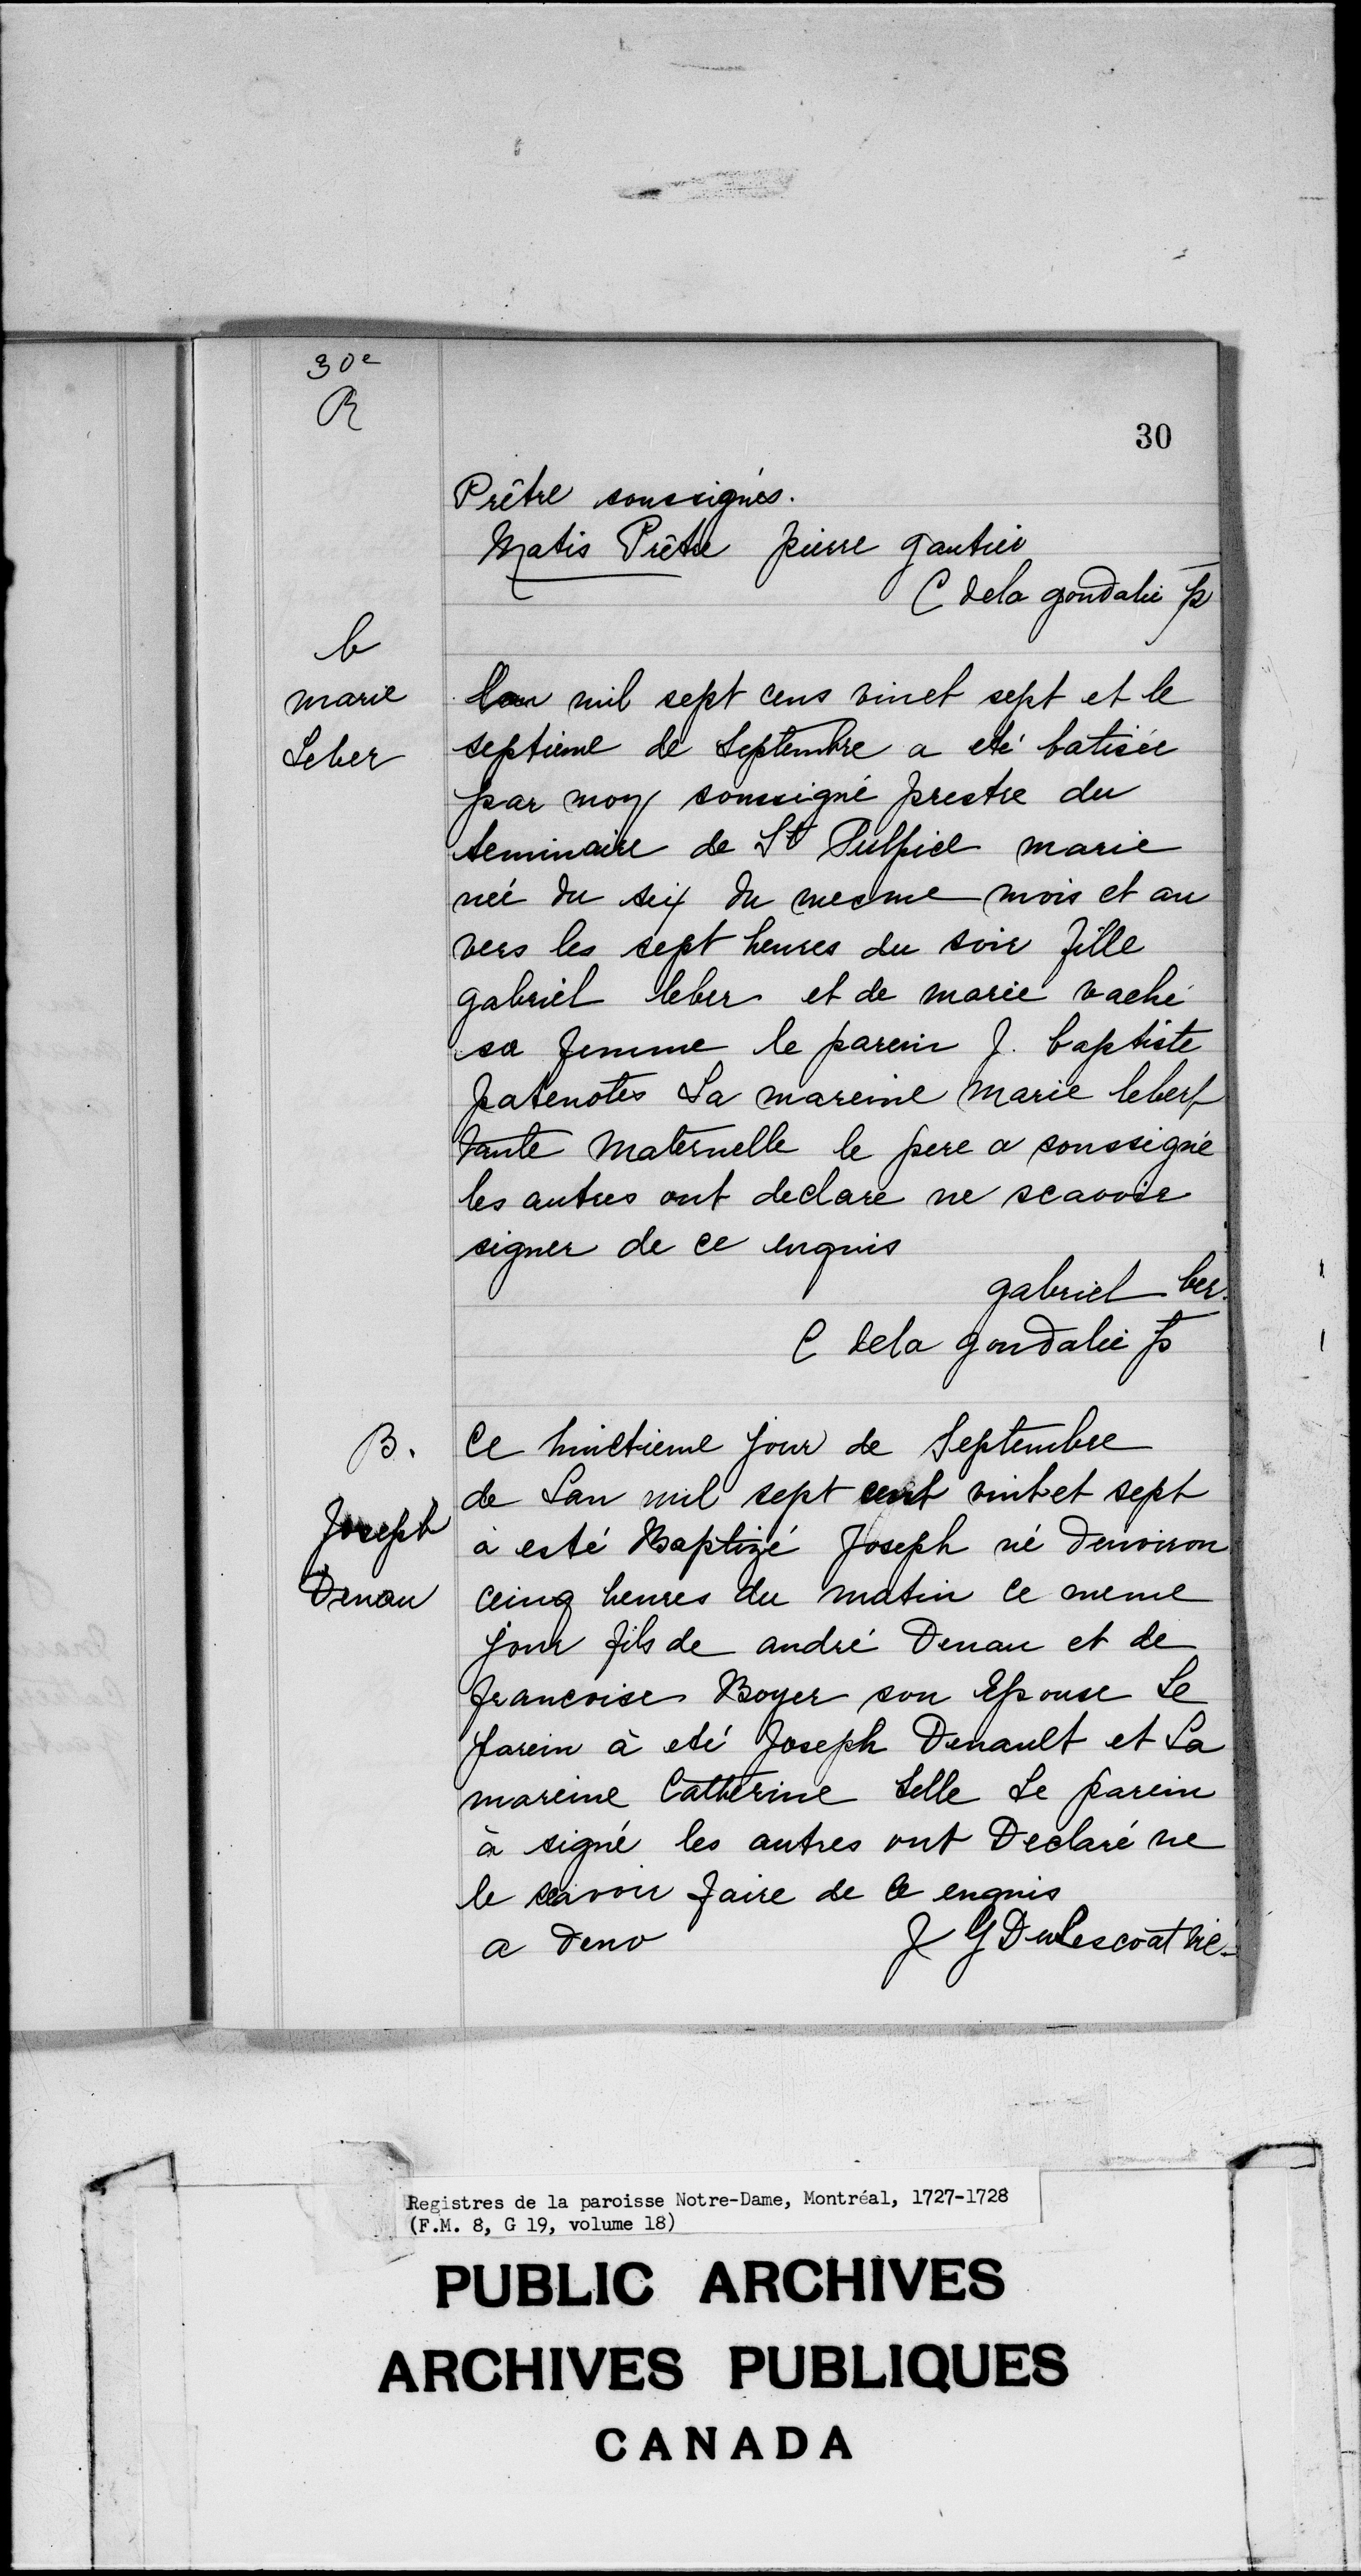 30e
R
30
Prêtre soussignés.
Matis Prêtre pierre gautier
C dela gondalie p
b
marie
Leber
Lan mil sept cens vinet sept et le
septieme de Septembre a eté batisée
par moy soussigné prestre du
seminaire de St Sulpice marie
née du six du mesme mois et an
vers les sept heures du soir fille
gabriel leber et de marie vaché
sa femme le parein J. baptiste
patenotes La mareine Marie leberf
tante Maternelle le pere a soussigné
les autres ont declare ne scavoir
signer de ce enquis
gabriel ber.
C dela gondalie p
B.
Joseph
Denau
Ce huictieme jour de Septembre
de Lan mil sept cent vint et sept
à esté Baptizé Joseph né denviron
cinq heures du matin ce meme
jour fils de andré Denau et de
francoise Boyer son Epouse Le
parein à eté Joseph Denault et La
mareine Catherine Selle Le parein
à signé les autres ont Declaré ne
le scavoir faire de ce enquis
a deno J G DuLescoat vic
Registres de la paroisse Notre-Dame, Montréal, 1727-1728
(F.M. 8, G 19, volume 18)
PUBLIC ARCHIVES
ARCHIVES PUBLIQUES
CANADA